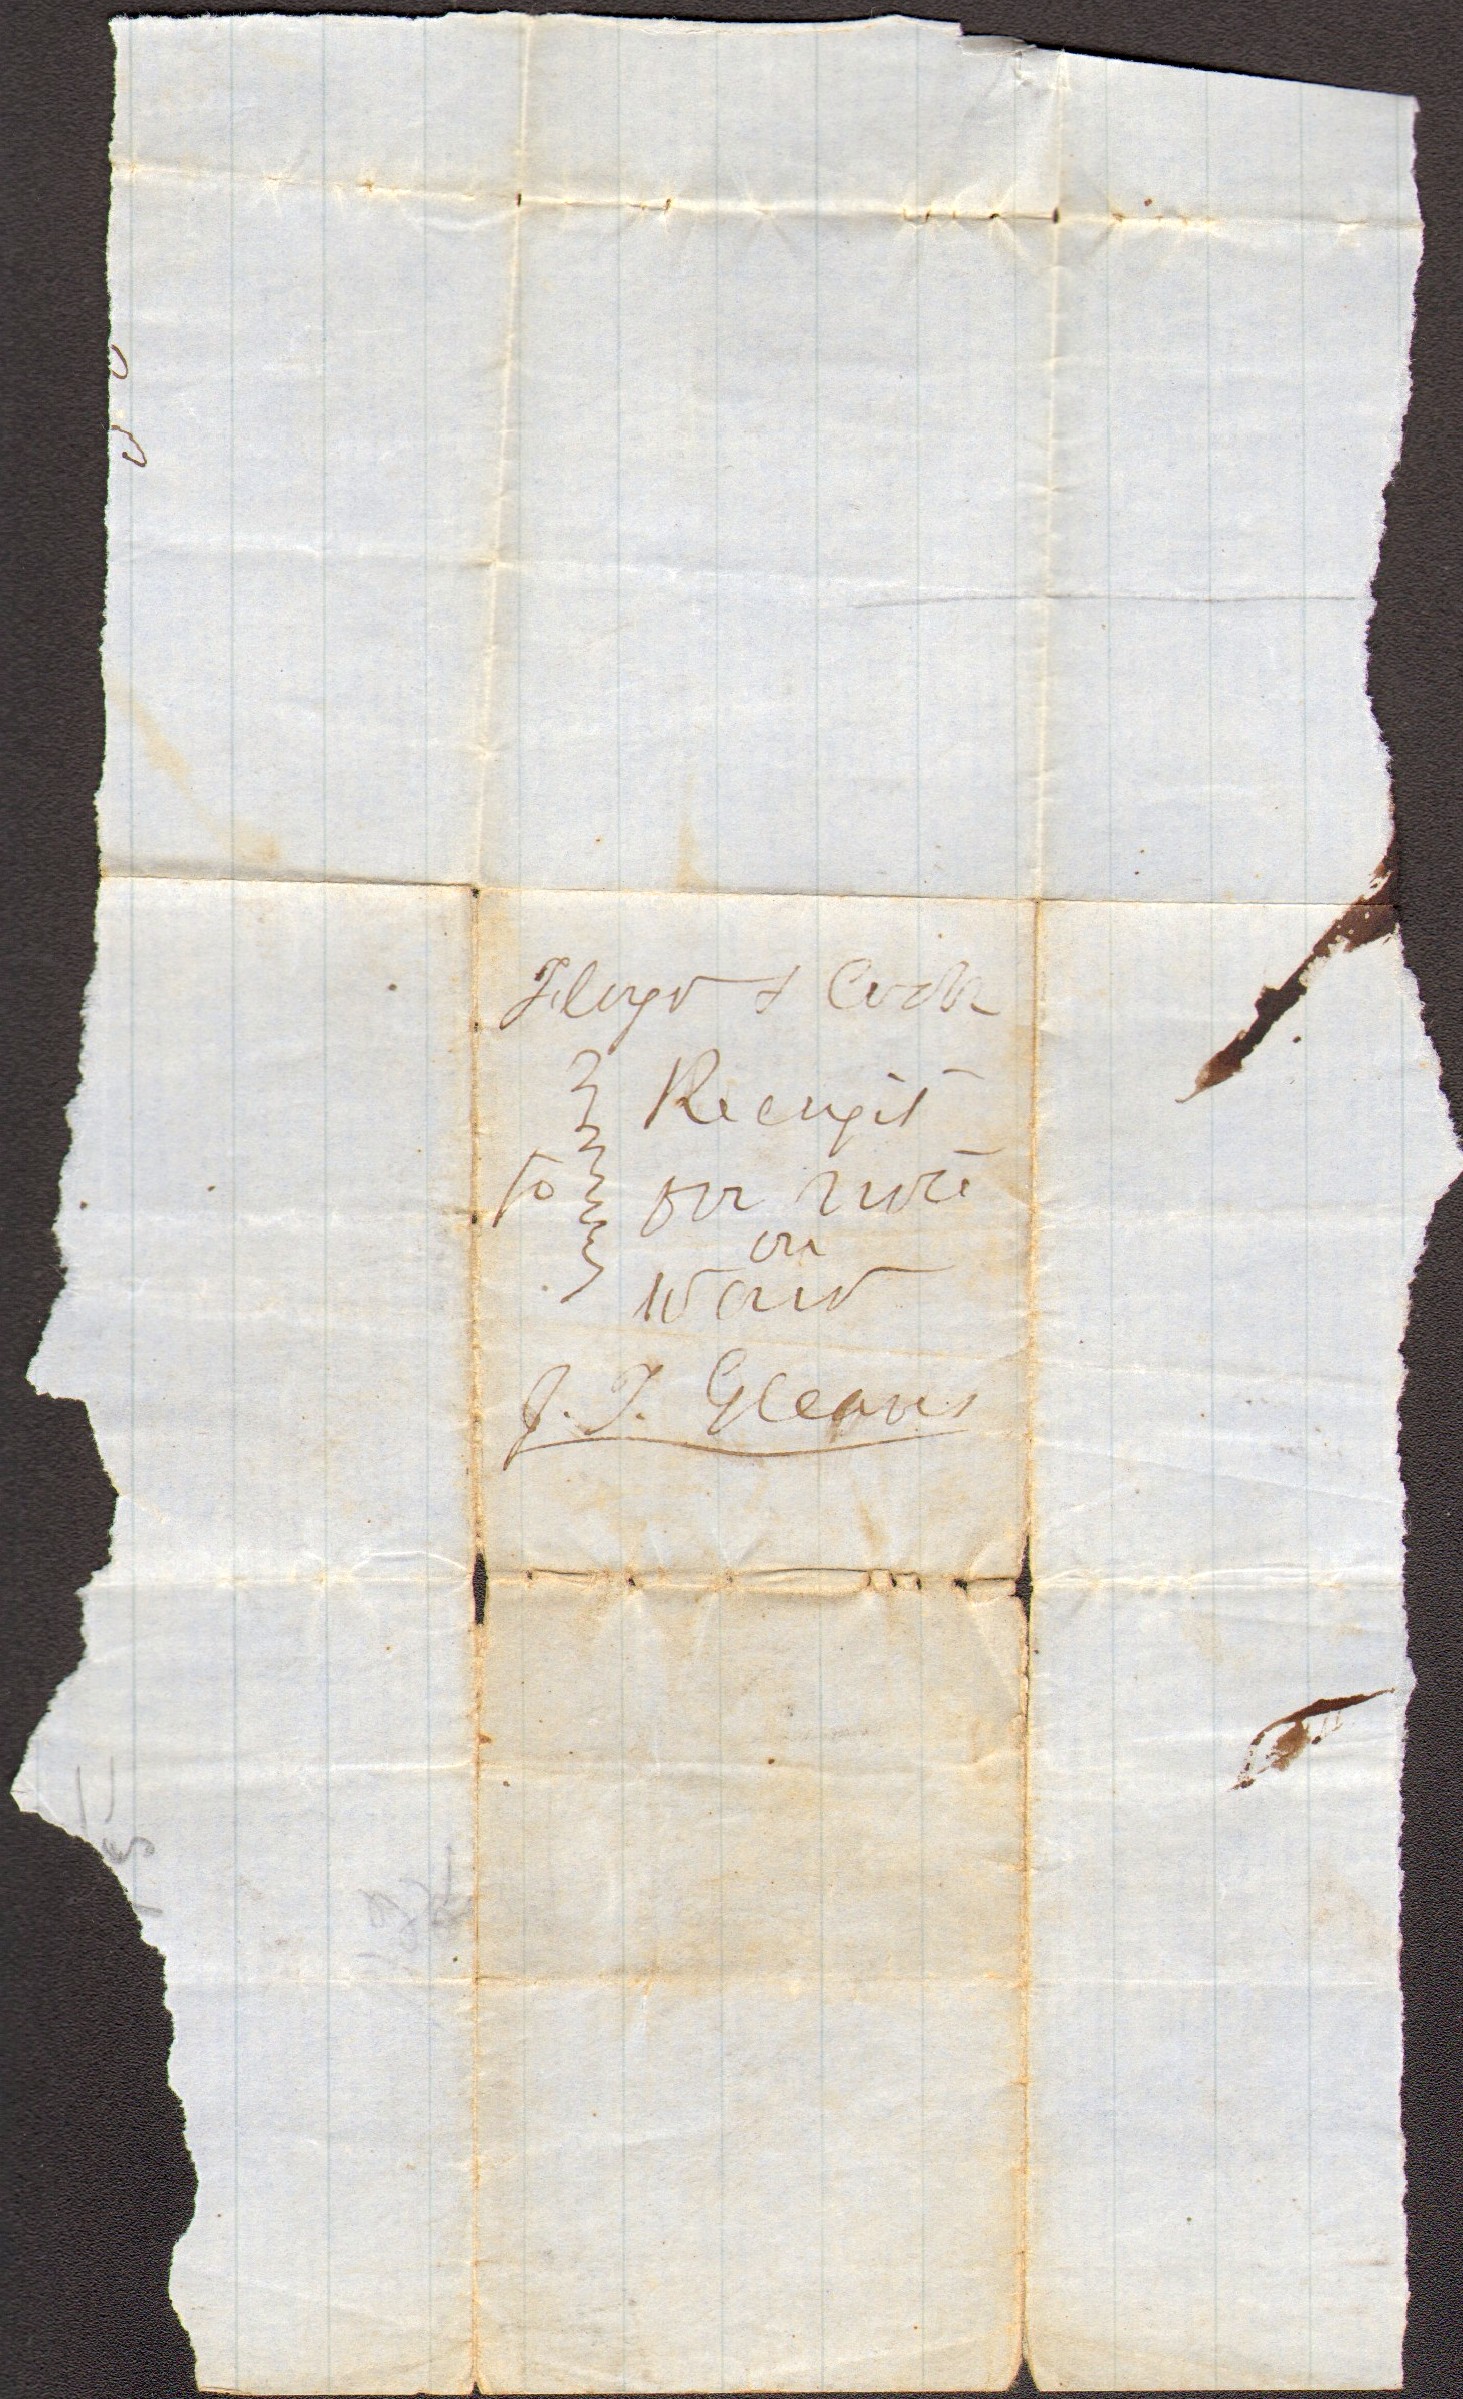 Floyd & Cook
Receipt
to for note
on
Ward
J. T. Gleaves